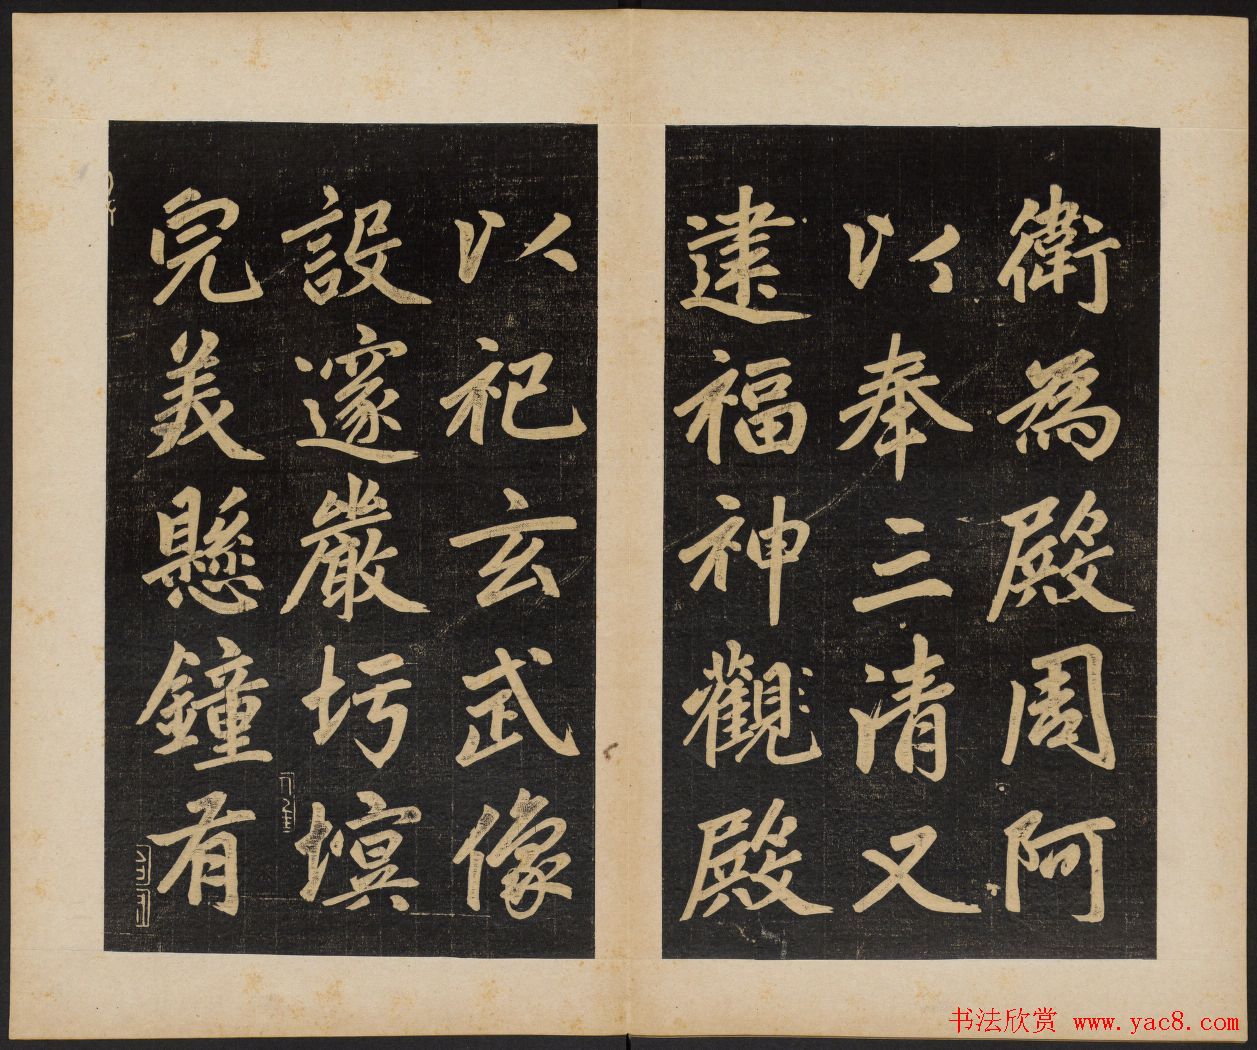 衛為殿周阿
以奉三清又
建福神觀殿
以祀玄武像
設邃嚴圬塓
完美懸鐘有
书法欣赏 www.yac8.com